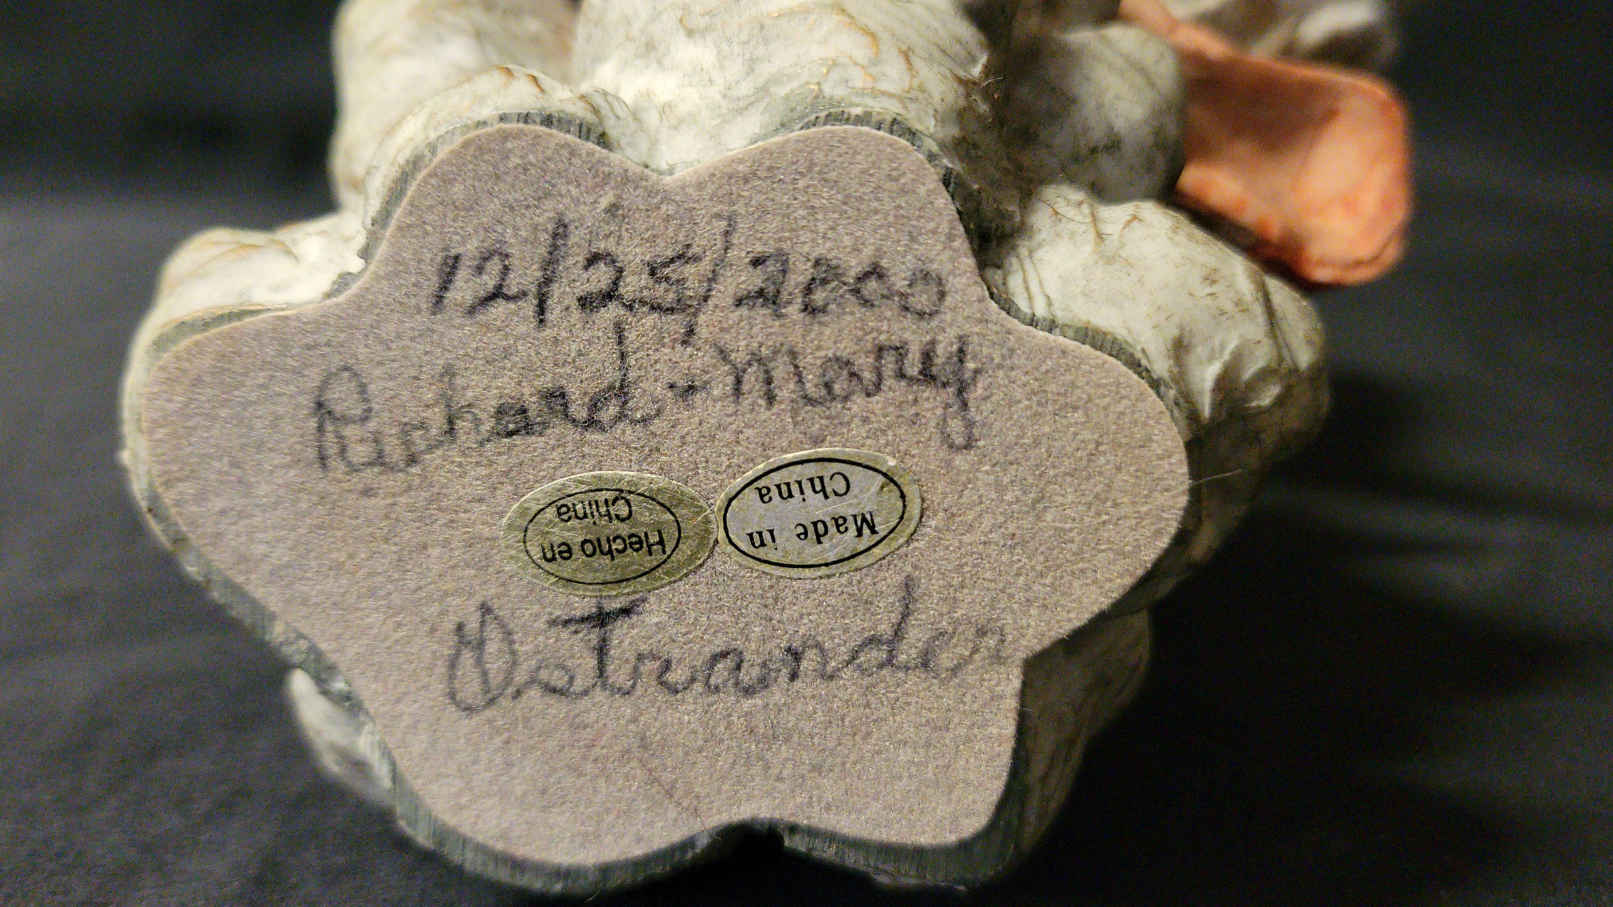 12/25/2000
Richard - Mary
Hecho en
China
Made in
China
Ostrander